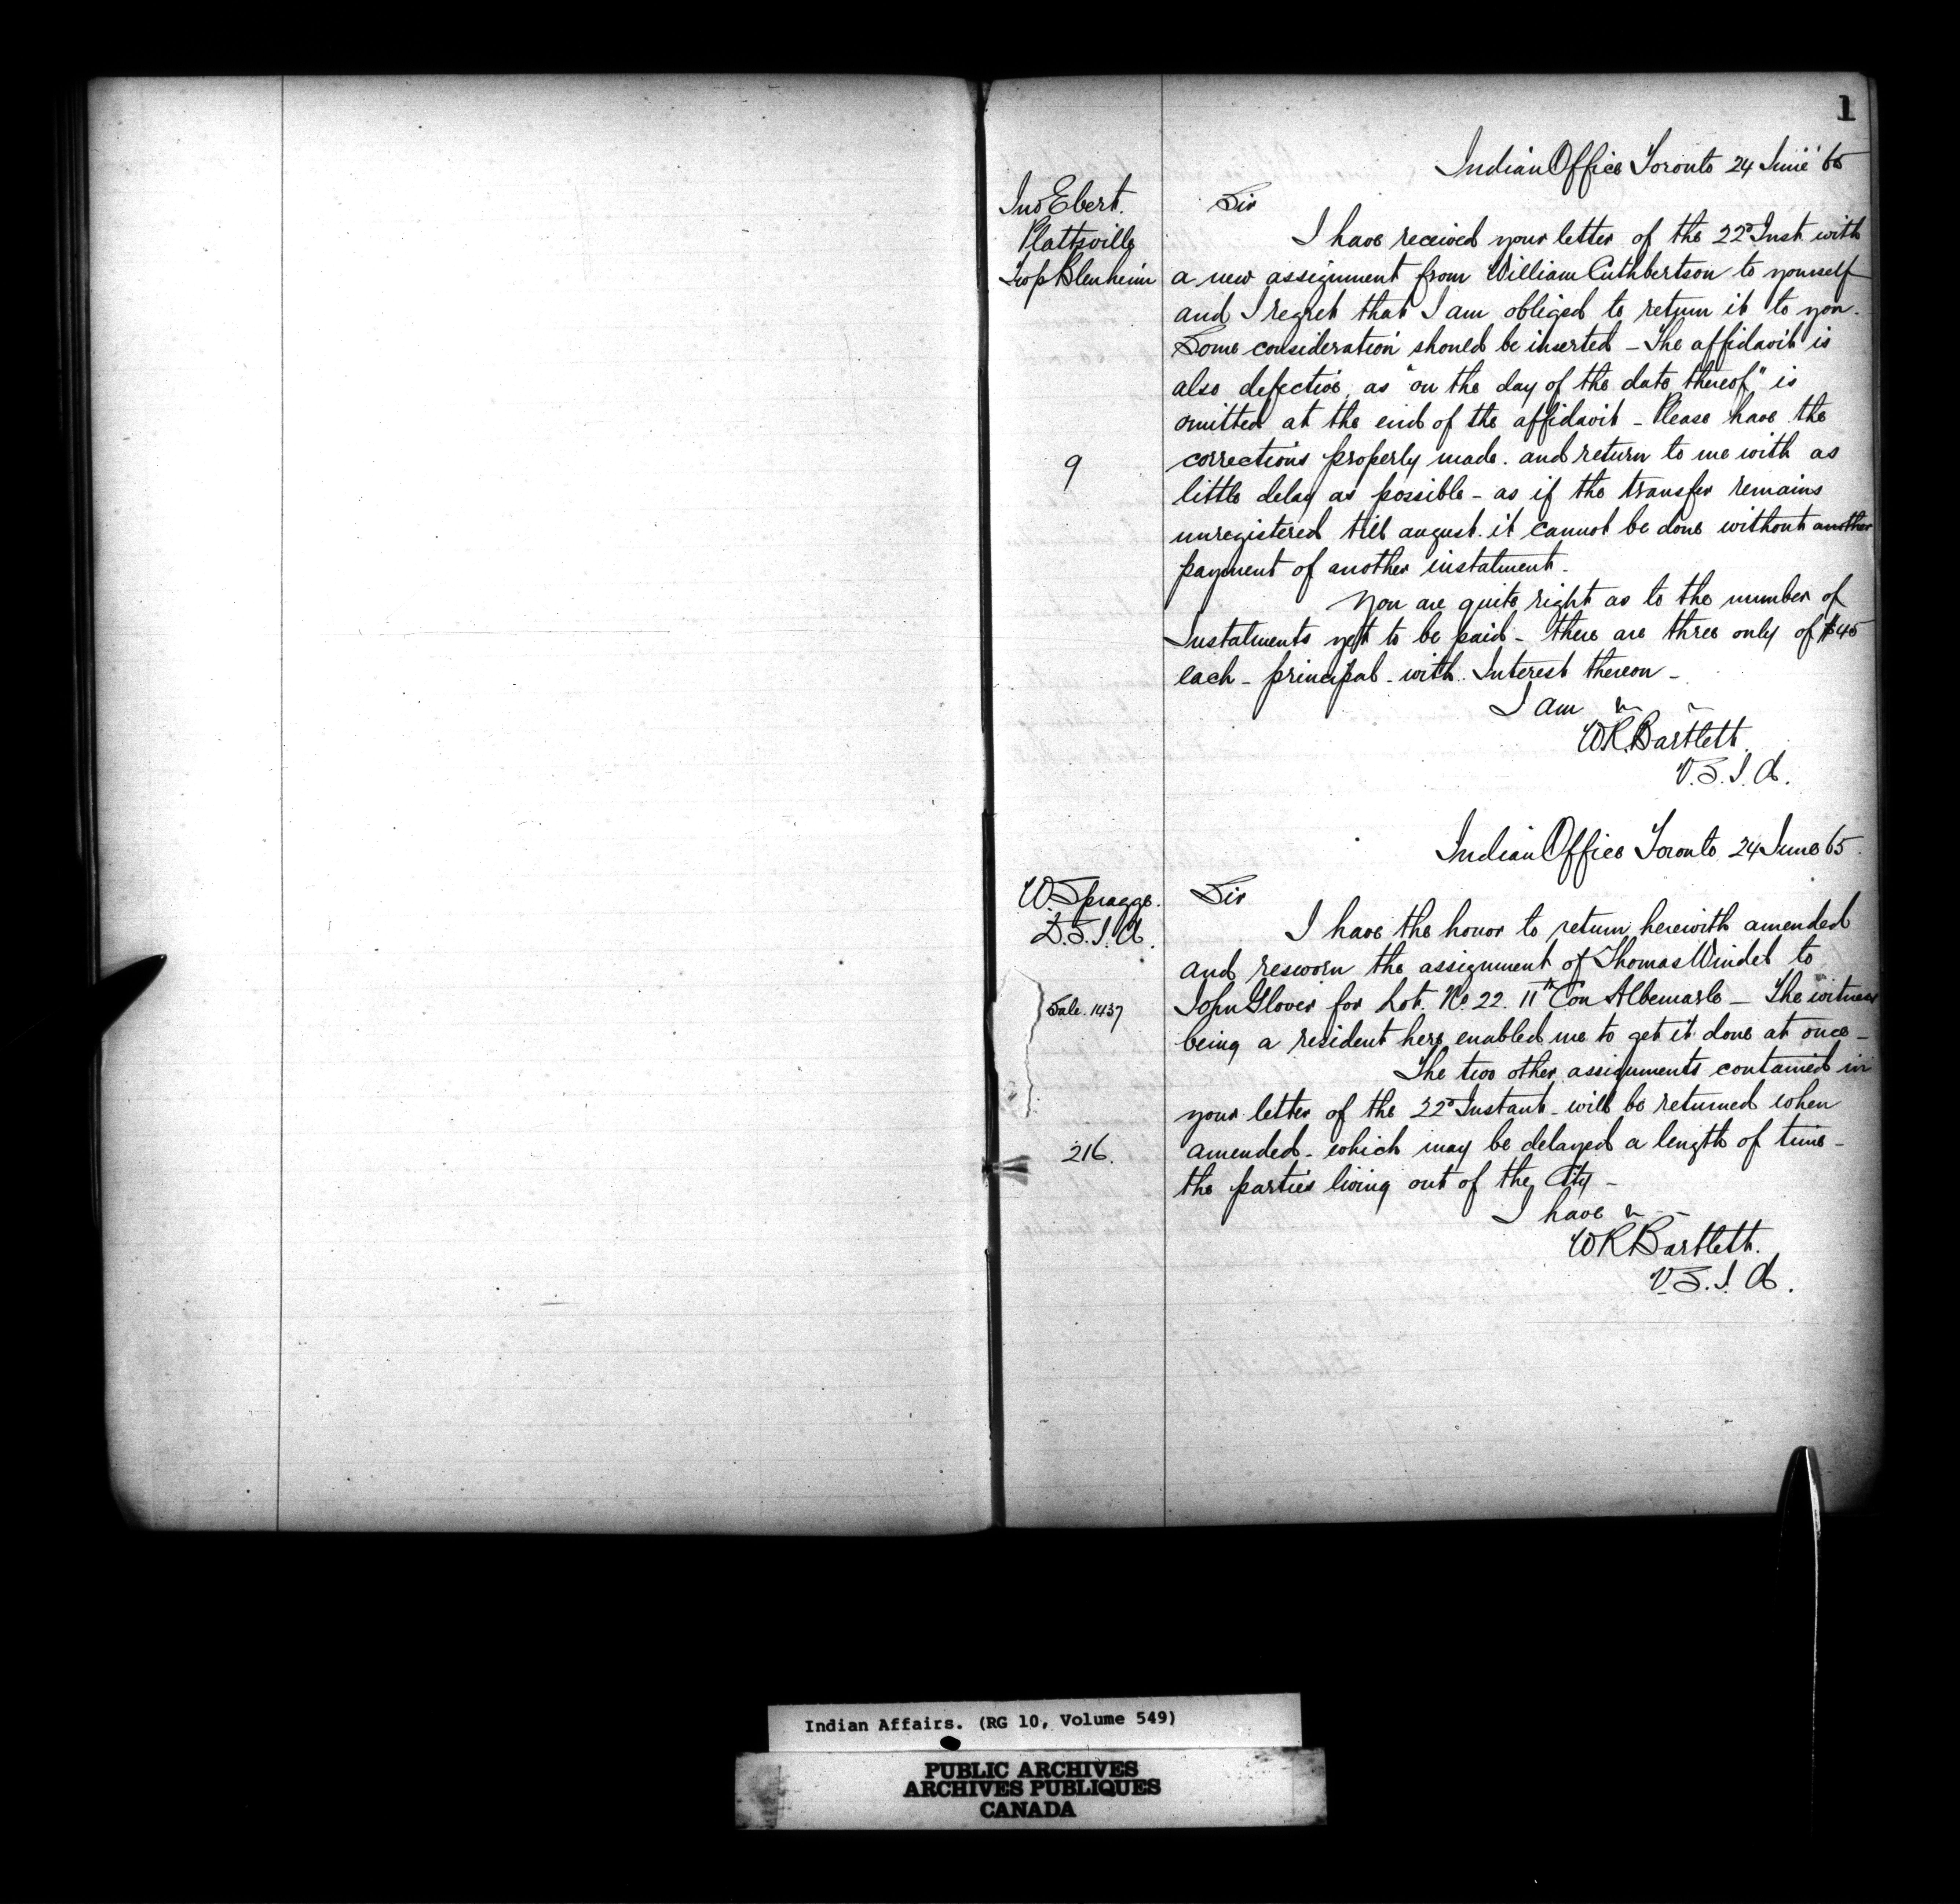 1
Indian Office Toronto 24 June '65
Jno Ebert.
Plattsville
Twp Blenheim
Sir
I have received your letter of the 22d Inst with
a new assignment from William Cuthbertson to yourself
and I regret that I am obliged to return it to you.
Some consideration should be inserted - The affidavit is
also defective, as "on the day of the date thereof" is
omitted at the end of the affidavit - Please have the
9
corrections properly made. and return to me with as
little delay as possible - as if the transfer remains
unregistered till august. it cannot be done without another
payment of another instalment.
You are quite right as to the number of
Instalments yet to be paid - there are three only of $45
each - principal - with Interest thereon -
I am
WR.Bartlett
V.S.I.A.
Indian Office Toronto 24 June 65.
W. Spragge.
D.S.I.A.
Sir
I have the honor to return herewith amended
and resworn the assignment of Thomas Windel to
Sale. 1437
John Glover for Lot. No. 22. 11th Con Albemarle - The witness
being a resident here enabled me to get it done at once -
The two other assignments contained in
your letter of the 22d Instant - will be returned when
216.
amended - which may be delayed a length of time -
the parties living out of the City -
I have
WRBartlett.
V.S.I.A.
Indian Affairs. (RG 10, Volume 549)
PUBLIC ARCHIVES
ARCHIVES PUBLIQUES
CANADA